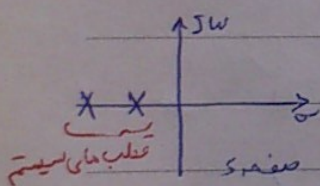 JW
σ
قطب های سیستم
صفحه s